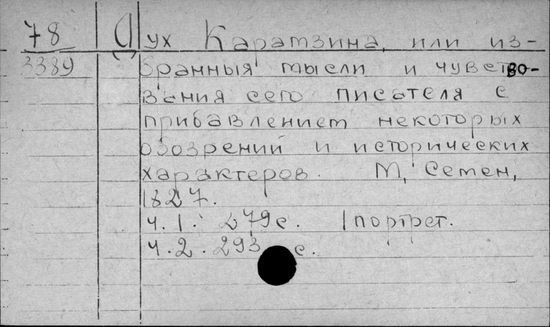 78 Дух Карамзина, или из-
3389 бранныя мысли и чувство-
вания сего писателя с
прибавлением некоторых
обозрений и исторических
характеров. М, Семен,
1827.
ч. 1. 279 с. 1 портрет.
ч. 2. 293 с.